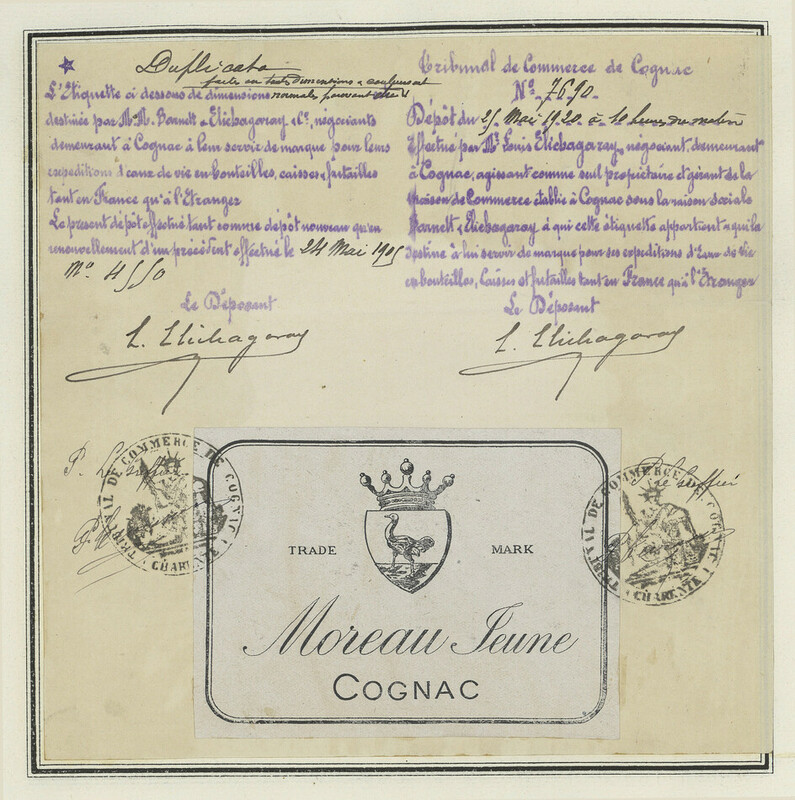 Duplicata
faite en toutes dimensions & couleurs et
L'Etiquette ci dessous de dimensions normales pouvant être
destinée par M.M. Barnett & Elichagaray & Cie, négociants
demeurant à Cognac à leur servir de marque pour leurs
expéditions d'eaux de vie en bouteilles, caisses & futailles
tant en France qu'à l'Etranger
Le présent dépôt effectué tant comme dépôt nouveau qu'en
renouvellement d'un précédent effectué le 24 Mai 1905
No. 4550
Le Déposant
L. Elichagaray
Tribunal de Commerce de Cognac
No. 7690.
Dépôt du 25 Mai 1920 à 10 heures du matin
Effectué par Mr. Louis Elichagaray, négociant demeurant
à Cognac, agissant comme seul propriétaire & gérant de la
maison de Commerce établie à Cognac sous la raison sociale
Barnett & Elichagaray à qui cette étiquette appartient & qui la
destine à lui servir de marque pour ses expéditions d'Eaux de Vie
en bouteilles, Caisses et futailles tant en France qu'à l'Etranger
Le Déposant
L. Elichagaray
TRIBUNAL DE COMMERCE DE COGNAC
CHARENTE
P. Le Greffier
TRADE MARK
Moreau Jeune
COGNAC
TRIBUNAL DE COMMERCE DE COGNAC
CHARENTE
P. Le Greffier